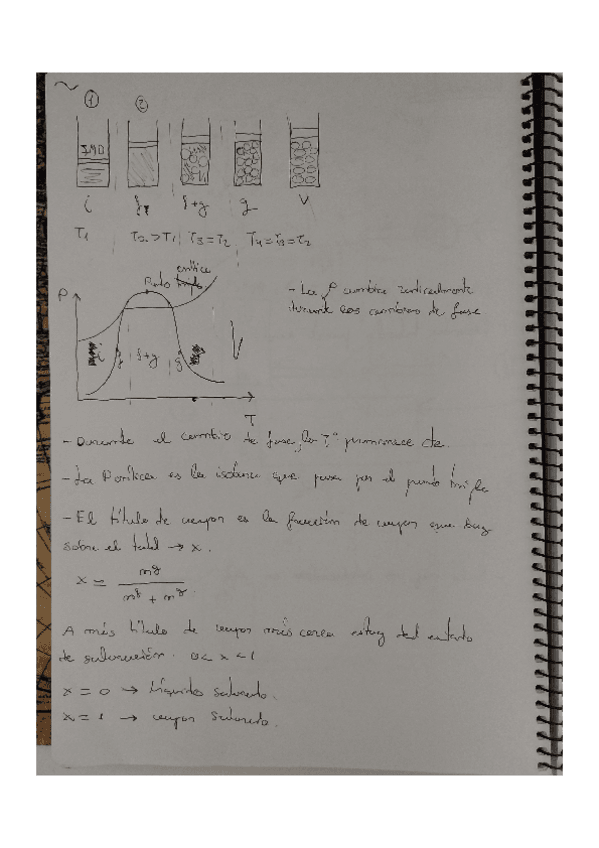 ① ②
i f f+g g V
T1 T2>T1 T3=T2 T4=T3=T2
crítico
Punto
P
- La P cambia
durante los cambios de fase
i f f+g g V
T
- Durante el cambio de fase, la Tª permanece cte.
- La P crítica es la isobara que pasa por el punto triple
- El título de vapor es la fracción de vapor que hay
sobre el total → x.
x = m^g / m^f + m^g
A más título de vapor más cerca estoy del estado
de saturación. 0 < x < 1
x = 0 → líquido saturado.
x = 1 → vapor saturado.